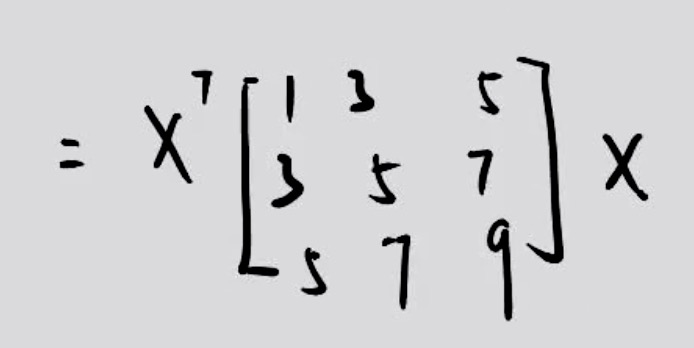 = X^T [ 1 3 5
3 5 7
5 7 9 ] X